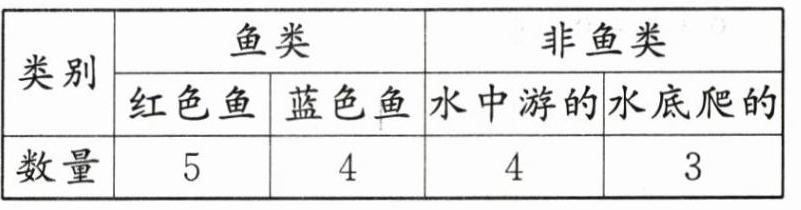 类别 鱼类 非鱼类
红色鱼 蓝色鱼 水中游的 水底爬的
数量 5 4 4 3